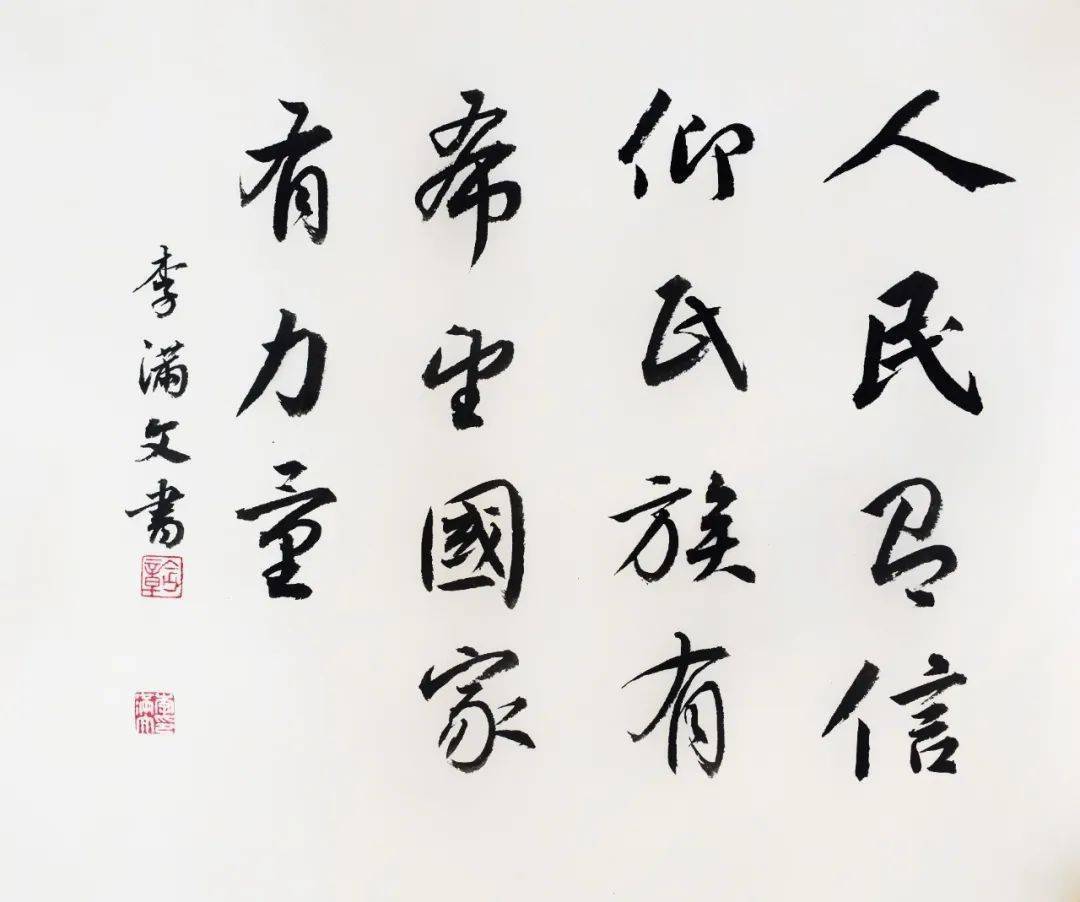 人民有信
仰民族有
希望國家
有力量
李滿文書